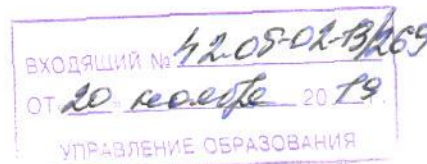 ВХОДЯЩИЙ № 42.05-02-13/269
ОТ „20" ноября 2019.
УПРАВЛЕНИЕ ОБРАЗОВАНИЯ